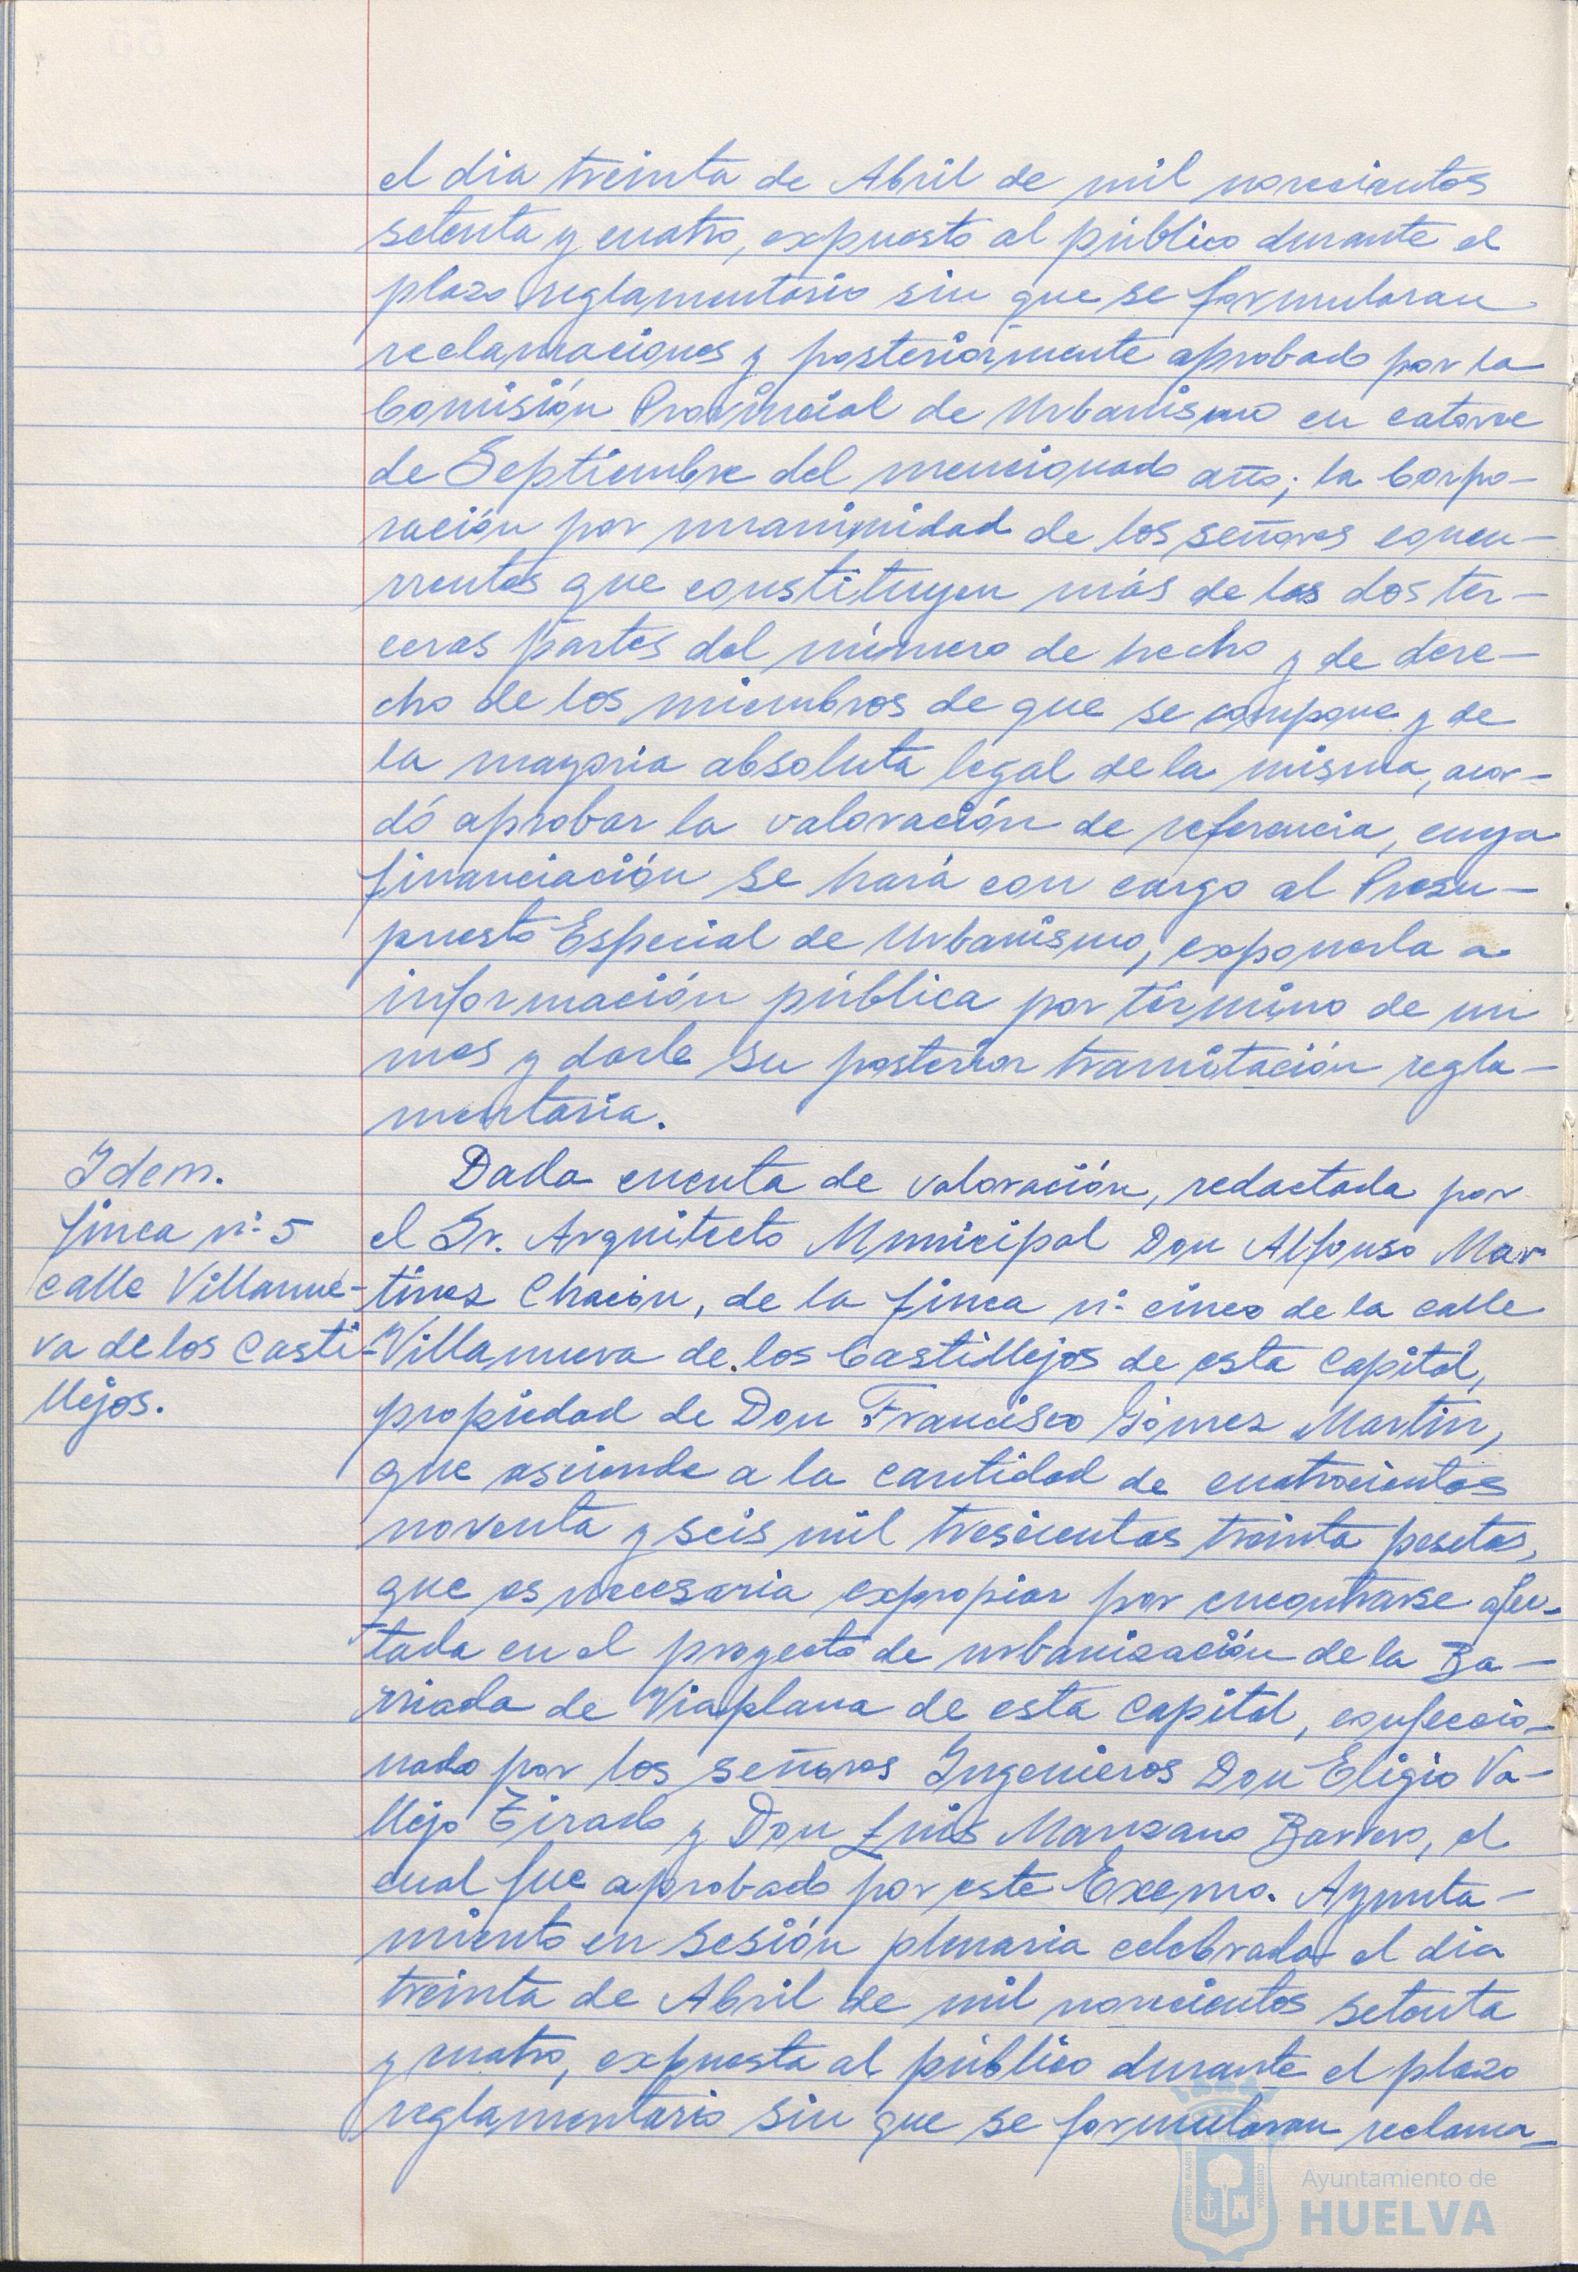 el dia treinta de Abril de mil novecientos
setenta y cuatro, expuesto al público durante el
plazo reglamentario sin que se formularan
reclamaciones y posteriormente aprobado por la
Comisión Provincial de Urbanismo en catorce
de Septiembre del mencionado año; la Corpo-
ración por unanimidad de los señores concu-
rrentes que constituyen más de las dos ter-
ceras partes del número de hecho y de dere-
cho de los miembros de que se compone y de
la mayoría absoluta legal de la misma, acor-
dó aprobar la valoración de referencia, cuya
financiación se hará con cargo al Presu-
puesto Especial de Urbanismo, exponerla a
información pública por término de un
mes y darle su posterior tramitación regla-
mentaria.
Idem.
finca nº 5
calle Villanue-
va de los Casti-
llejos.
Dada cuenta de valoración, redactada por
el Sr. Arquitecto Municipal Don Alfonso Mar
tinez Chacón, de la finca nº cinco de la calle
Villanueva de los Castillejos de esta Capital,
propiedad de Don Francisco Gómez Martin,
que asciende a la cantidad de cuatrocientas
noventa y seis mil trescientas treinta pesetas,
que es necesaria expropiar por encontrarse afec-
tada en el proyecto de urbanización de la Ba-
rriada de Viaplana de esta Capital, confeccio-
nado por los señores Ingenieros Don Eligio Va-
llejo Tirado y Don Luis Manzano Barrero, el
cual fue aprobado por este Excmo. Ayunta-
miento en sesión plenaria celebrada el dia
treinta de Abril de mil novecientos setenta
y cuatro, expuesta al público durante el plazo
reglamentario sin que se formularan reclama-
PORTUS MARIS
CUSTODIA
Ayuntamiento de
HUELVA